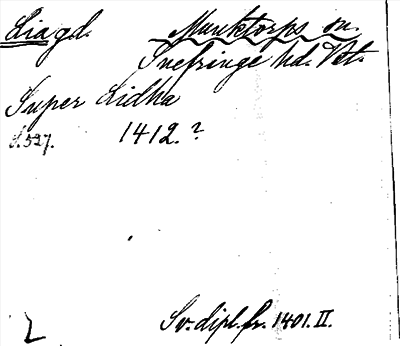 Lia gd. Munktorps sn.
Snefringe hd. Vstl.
Super Lidha
S. 527. 1412.?
Sv. dipl. fr. 1401. II.